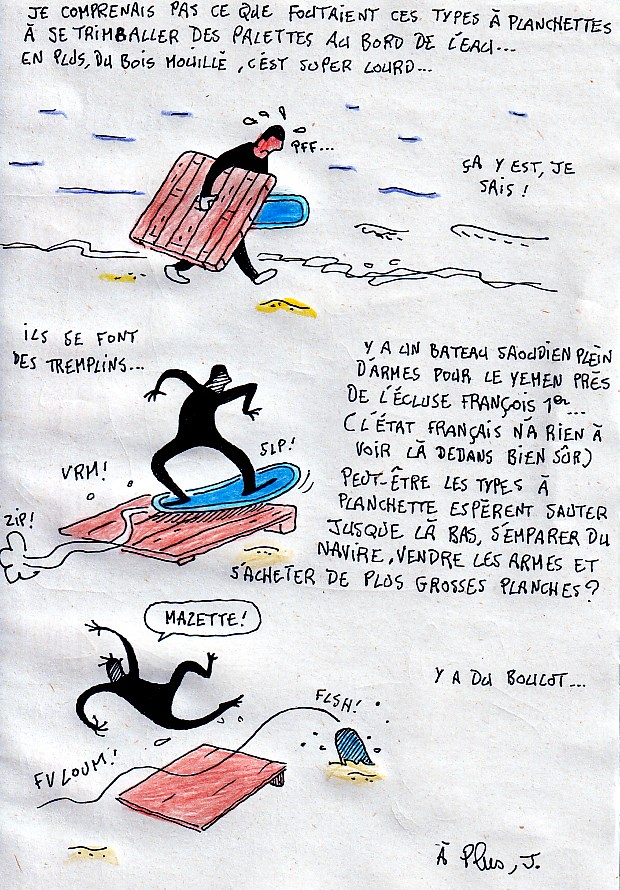 JE COMPRENAIS PAS CE QUE FOUTAIENT CES TYPES À PLANCHETTES
À SE TRIMBALLER DES PALETTES AU BORD DE L'EAU...
EN PLUS, DU BOIS MOUILLÉ, C'EST SUPER LOURD...
PFF...
ÇA Y EST, JE
SAIS !
ILS SE FONT
DES TREMPLINS...
SLP!
VRM!
ZIP!
Y A UN BATEAU SAOUDIEN PLEIN
D'ARMES POUR LE YEMEN PRÈS
DE L'ÉCLUSE FRANÇOIS 1er...
(L'ÉTAT FRANÇAIS N'A RIEN À
VOIR LÀ DEDANS BIEN SÛR)
PEUT-ÊTRE LES TYPES À
PLANCHETTE ESPÈRENT SAUTER
JUSQUE LÀ BAS, S'EMPARER DU
NAVIRE, VENDRE LES ARMES ET
S'ACHETER DE PLUS GROSSES PLANCHES ?
MAZETTE!
Y A DU BOULOT...
FLSH!
FVLOUM!
À Plus, J.